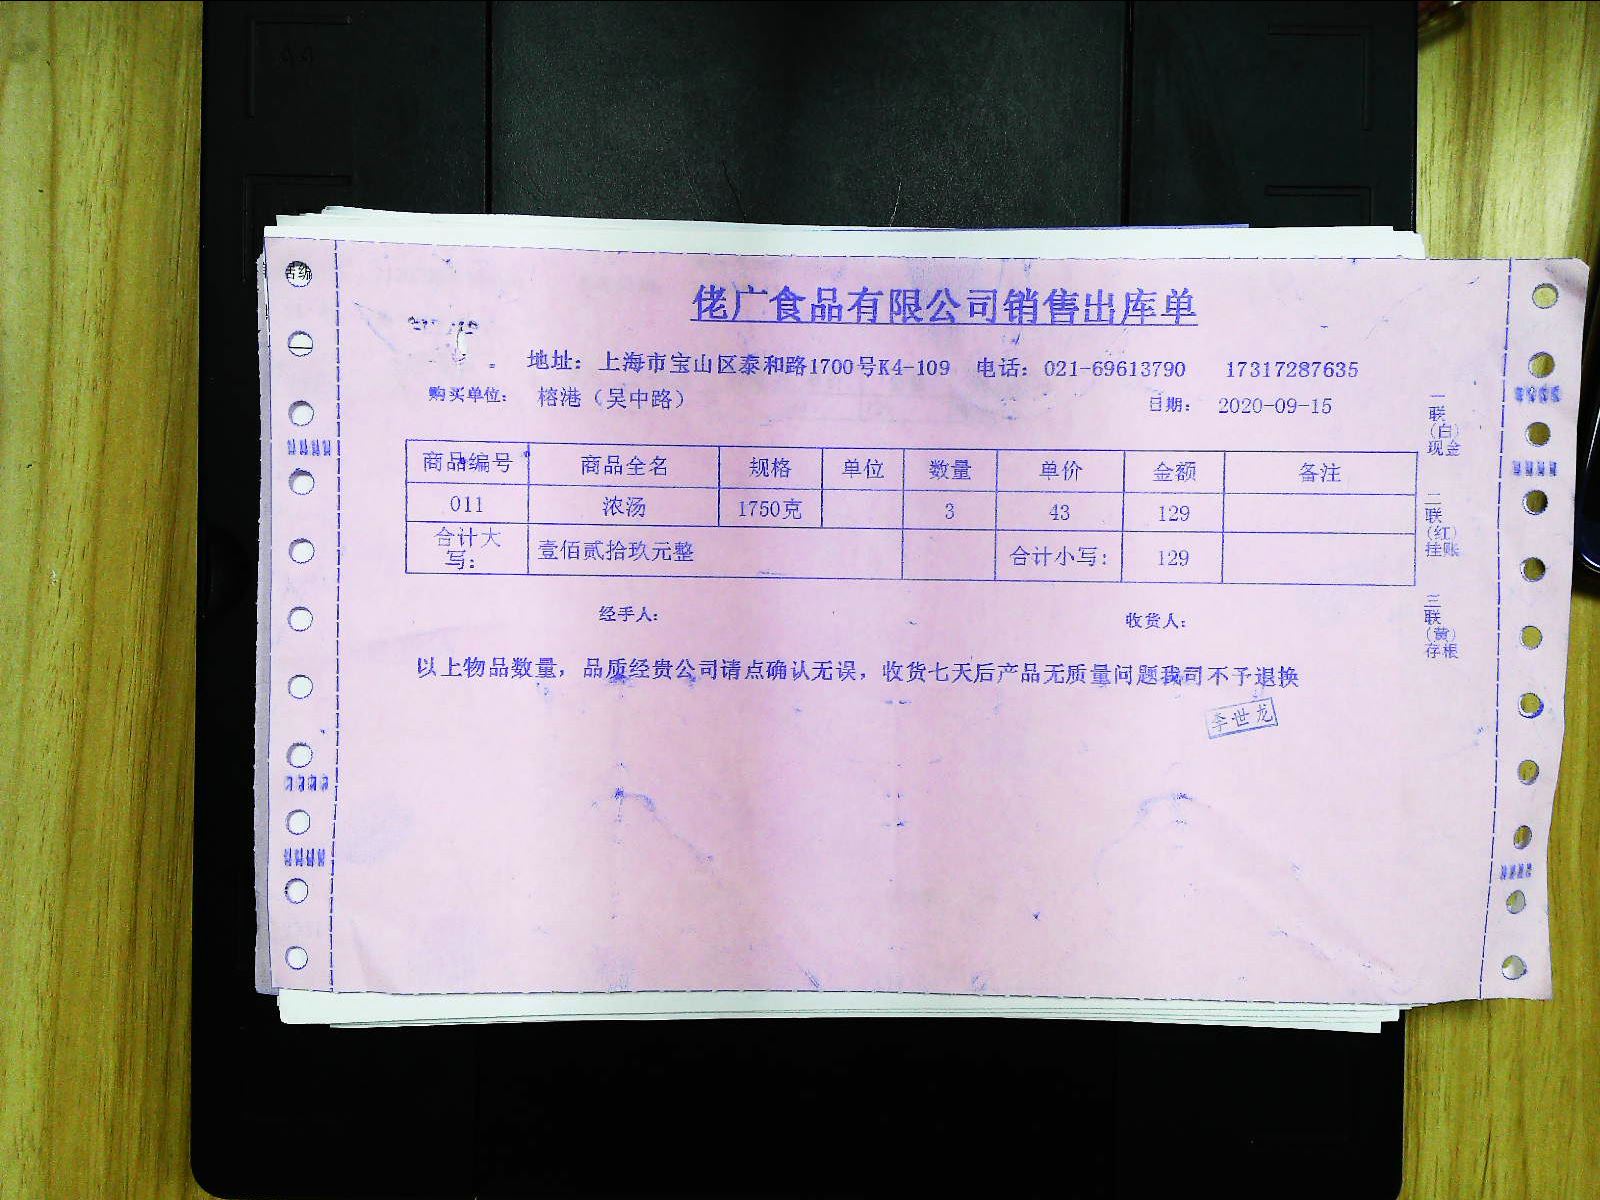 佬广食品有限公司销售出库单
地址：上海市宝山区泰和路1700号K4-109 电话：021-69613790 17317287635
购买单位： 榕港（吴中路） 日期： 2020-09-15
商品编号 商品全名 规格 单位 数量 单价 金额 备注
011 浓汤 1750克 3 43 129
合计大写： 壹佰贰拾玖元整 合计小写： 129
经手人： 收货人：
以上物品数量，品质经贵公司请点确认无误，收货七天后产品无质量问题我司不予退换
李世龙
一联（白）现金
二联（红）挂账
三联（黄）存根